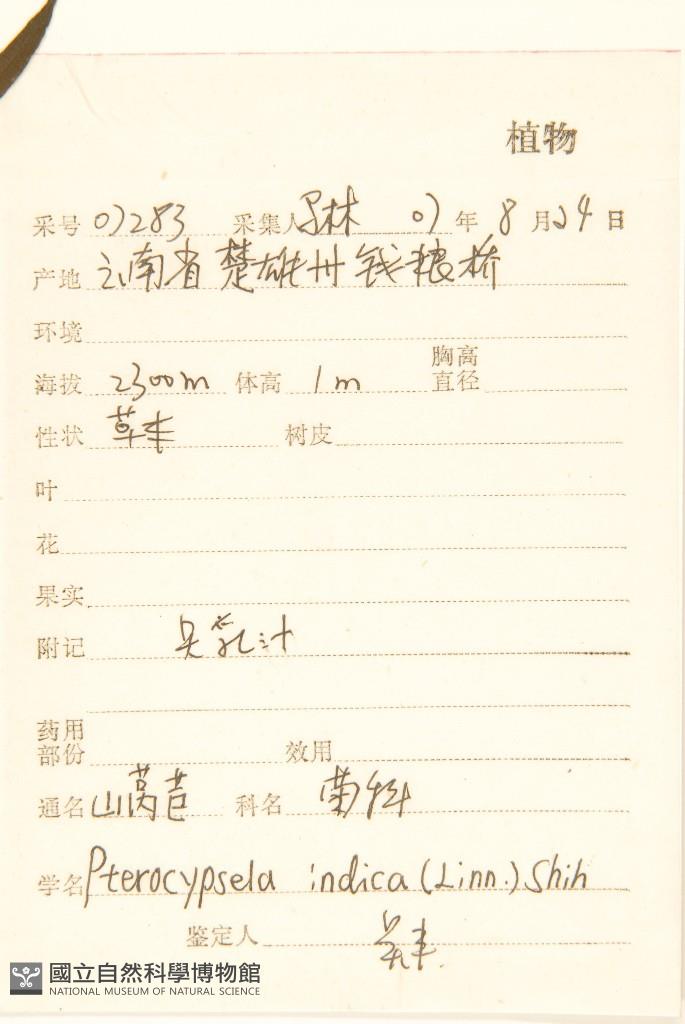 植物
采号 07283 采集人 林 07 年 8 月 24 日
产地 云南省楚雄州钱粮桥
环境
海拔 2300m 体高 1m 胸高直径
性状 草本 树皮
叶
花
果实
附记 具乳汁
药用部份 效用
通名 山莴苣 科名 菊科
学名 Pterocypsela indica (Linn.) Shih
鉴定人
國立自然科學博物館
NATIONAL MUSEUM OF NATURAL SCIENCE